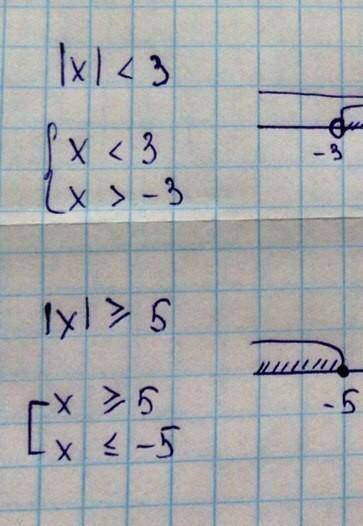 |x| < 3
{ x < 3
x > -3
-3
|x| ⩾ 5
[ x ⩾ 5
x ≤ -5
-5